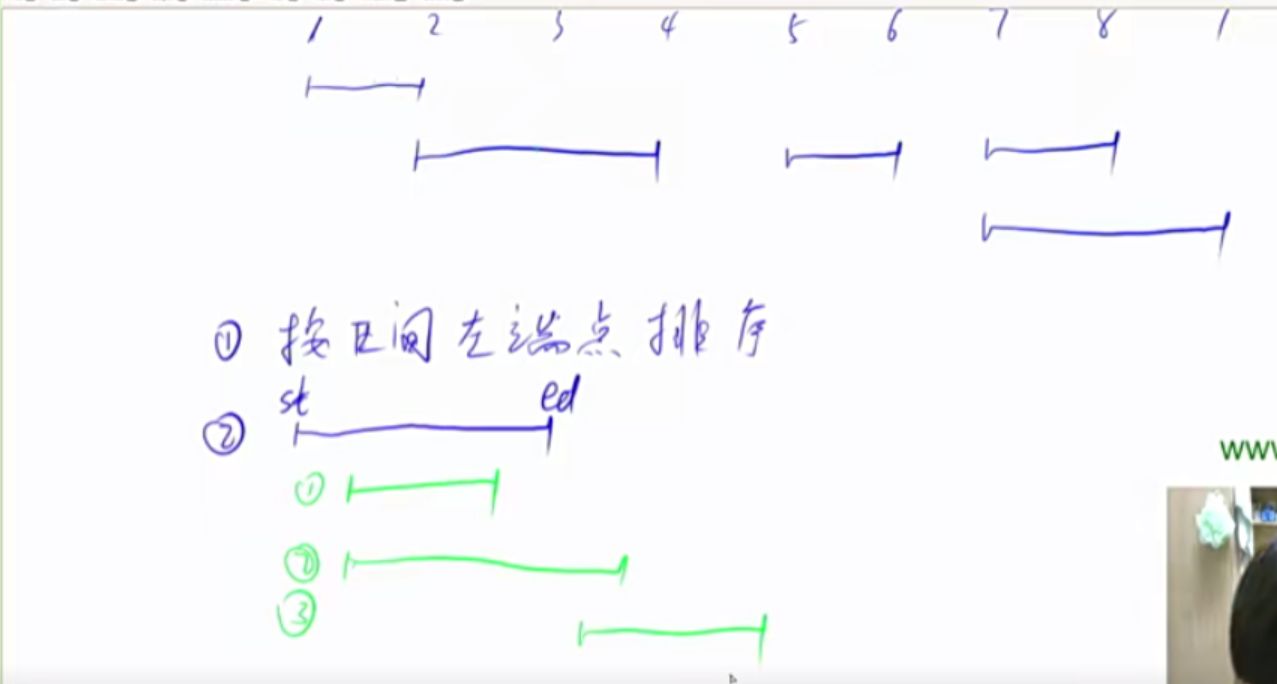 1 2 3 4 5 6 7 8 1
① 按区间左端点排序
st ed
②
①
②
③
www